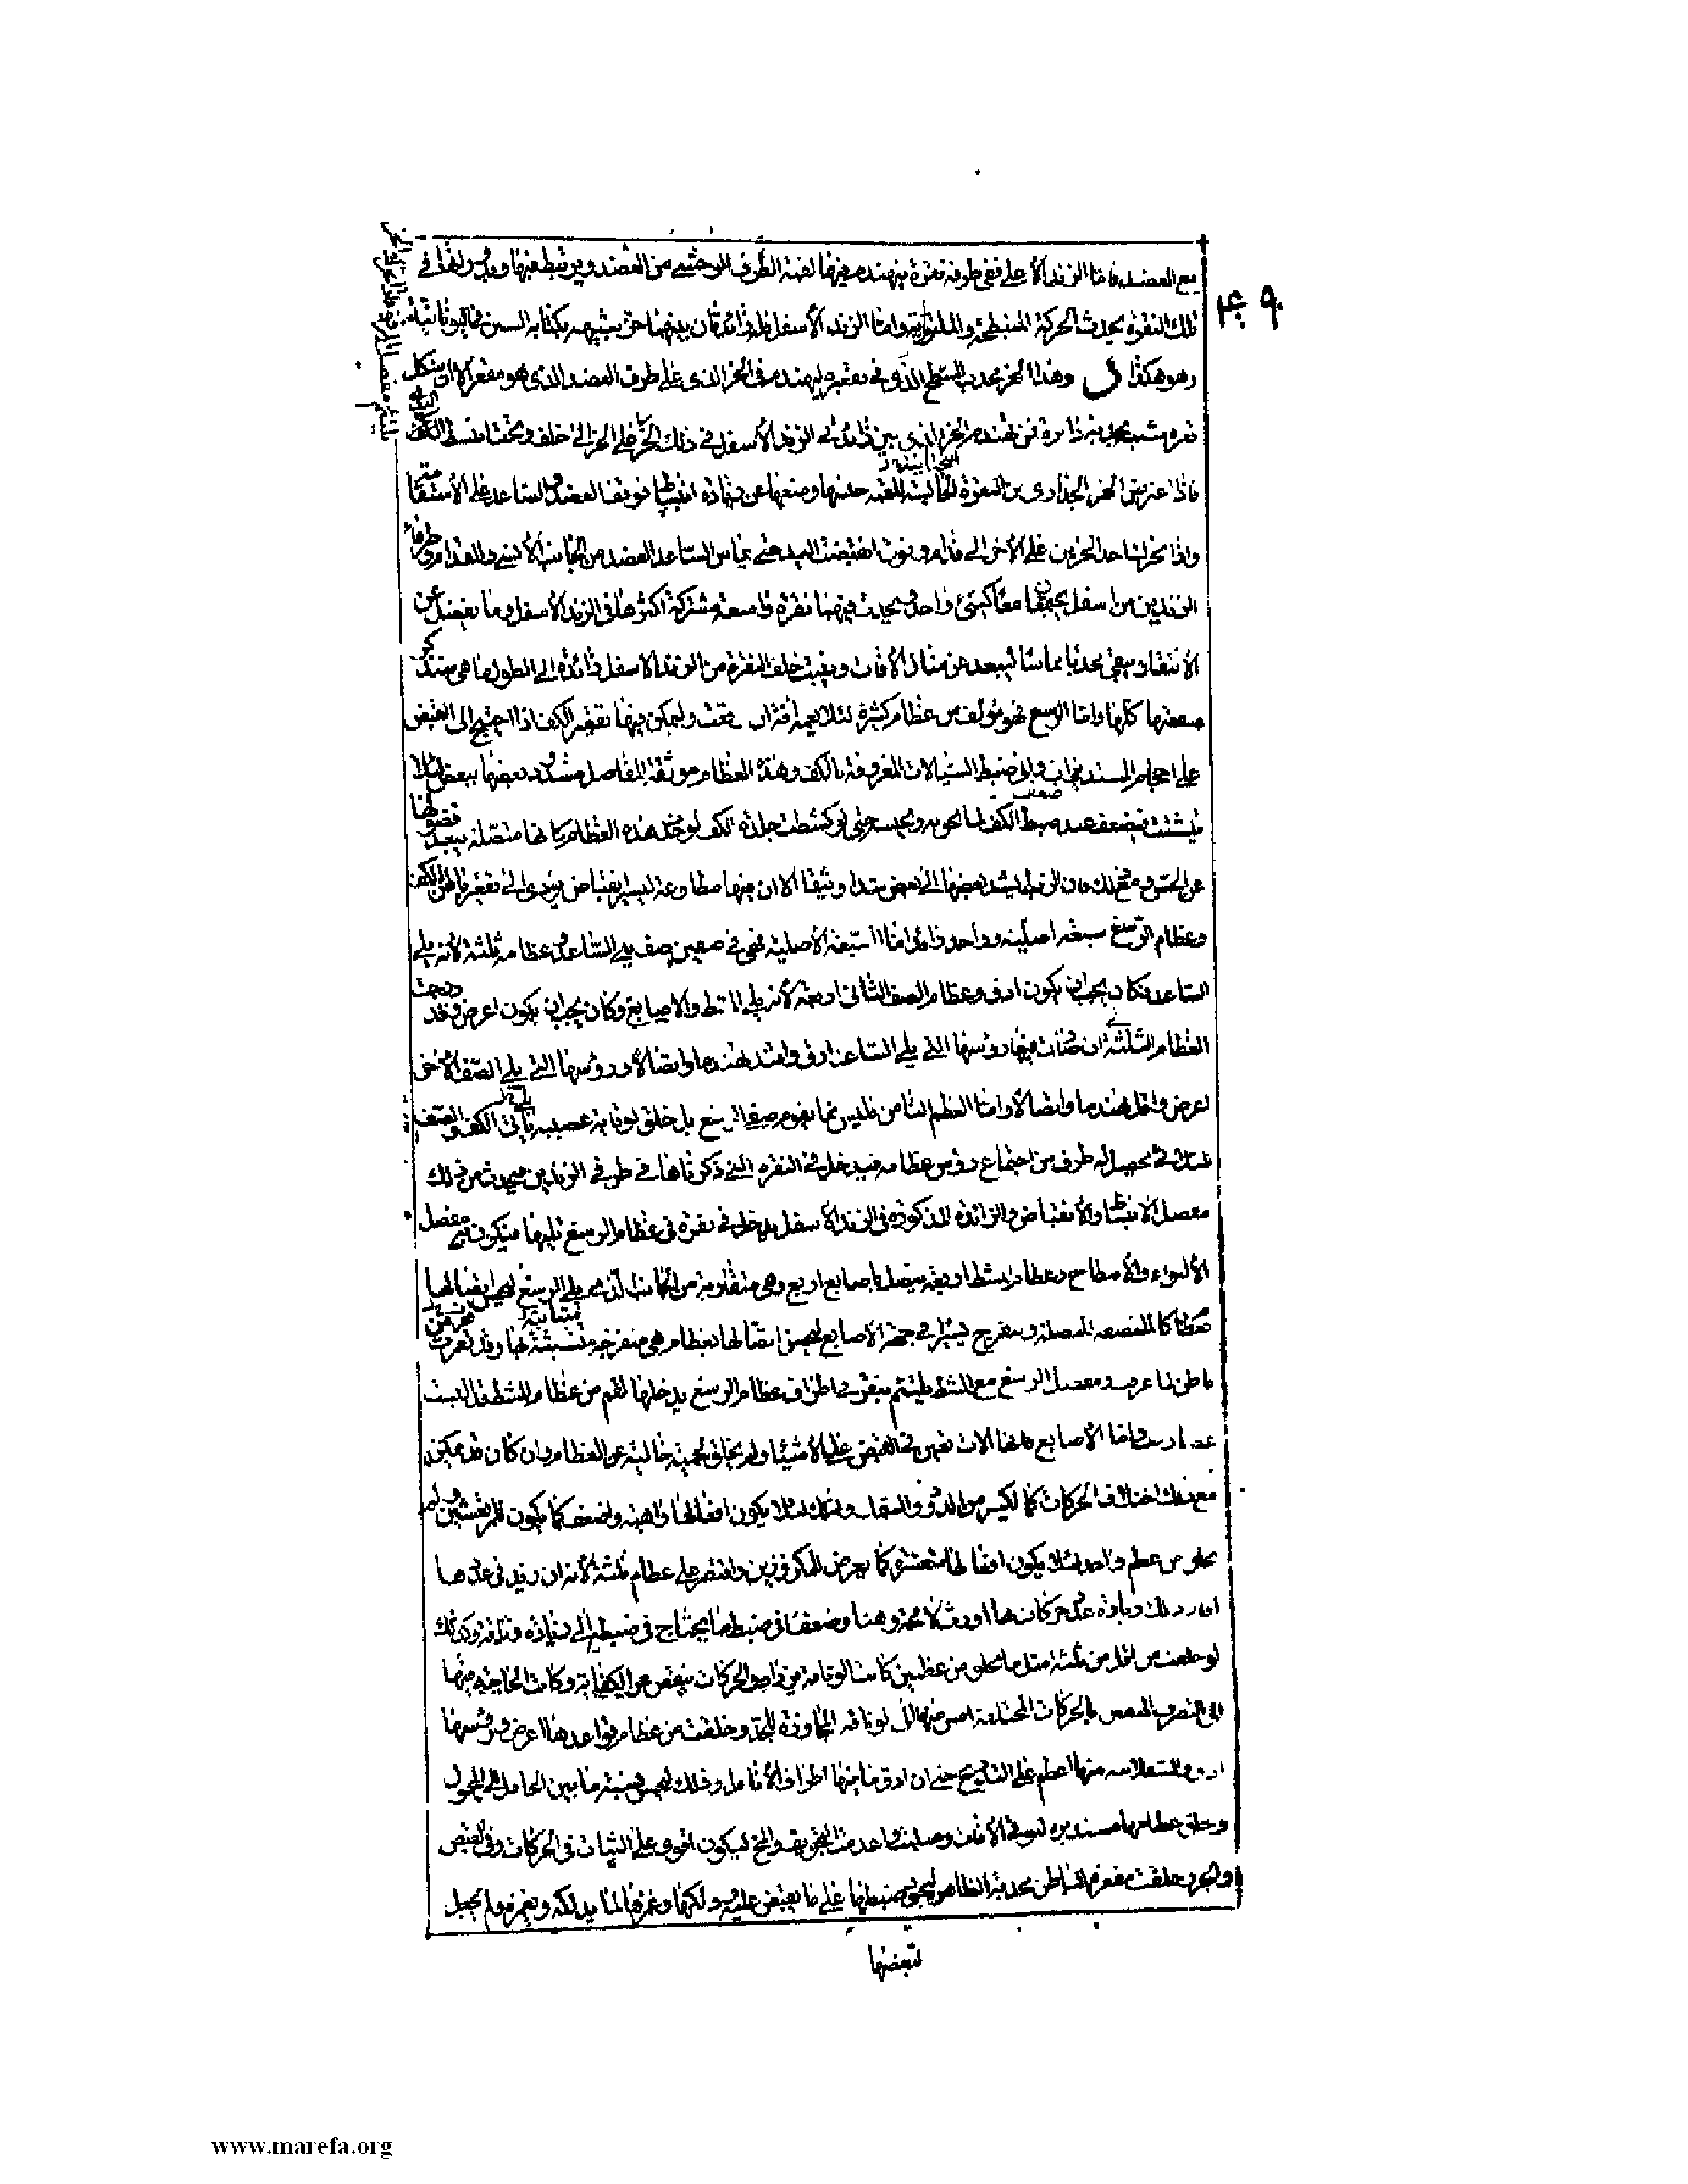 ٤٩
مع العضد فاما الزند الأعلى ففي طرفه نقرة يتهندم فيها لقمة الطرف الوحشي من العضد ويرتبط فيها وبدورانها في
تلك النقرة يحدث الحركة المنبطحة والملتوية واما الزند الأسفل فله زائدتان بينهما حز شبيه بكتابة السين في اليونانية
وهو هكذا وهذا الحز محدب السطح الذي في تقعيره ليهندم في الحز الذي على طرف العضد الذي هو مقعر الا ان شكل
قعره شبيه بحدبة دائرة فمن تهندم الحز الذي بين زائدتي الزند الأسفل في ذلك الحز
فاذا تحرك الحز على الحز الى خلف وتحت انبسط اليد
فاذا اعترض الحز الجداري من النقرة الحابسة للقمة حبسها ومنعها عن زيادة انبساط فوقف العضد والساعد على الاستقامة
واذا تحرك احد الحزين على الآخر الى قدام وفوق انقبضت اليد حتى يماس الساعد العضد من الجانب الأنسي والقدام وطرفا
الزندين من اسفل يجتمعان معا كشيء واحد ويحدث فيهما نقرة واسعة مشتركة اكثرها في الزند الأسفل وما يفضل عن
الانتقار يبقى محدبا مملسا ليبعد عن منال الآفات وينبت خلف النقرة من الزند الاسفل زائدة الى الطول ما هي وسنذكر
منفعتها واما الرسغ فهو مؤلف من عظام كثيرة لئلا يعمه آفة ان وقعت وليمكن فيها تقعير الكف اذا احتيج الى القبض
على احجام المستديرات والى ضبط السيالات المغروفة بالكف وهذه العظام موثقة المفاصل مشدود بعضها ببعض لئلا
يتشتت فيضعف عند ضبط الكف لما يحويه ويحبسه حتى لو كشطت جلدة الكف لوجد هذه العظام كانها متصلة يبعد فصولها
عن الحس ومع ذلك فان الربط يشد بعضها الى بعض شدا وثيقا الا ان فيها مطاوعة ليسير انقباض يؤدي الى تقعير باطن الكف
وعظام الرسغ سبعة اصلية وواحد زائد اما السبعة الأصلية فهي في صفين صف يلي الساعد وعظامه ثلثة لأنه يلي
الساعد فكان يجب ان يكون ادق وعظام الصف الثاني اربعة لأنه يلي المشط والاصابع وكان يجب ان يكون اعرض وقد درجت
العظام الثلثة ان رؤسها التي يلي الساعد ادق واشد تهندما واتصالا ورؤسها التي يلي الصف الآخر
اعرض واقل تهندما واتصالا واما العظم الثامن فليس مما يقوم صفي الرسغ بل خلق لوقاية عصبة تأتي الكف والصف
الثلاثي يحصل له طرف من اجتماع رؤس عظامه فيدخل في النقرة التي ذكرناها في طرفي الزندين فيحدث من ذلك
مفصل الانبساط والانقباض والزائدة المذكورة في الزند الأسفل يدخل في نقرة في عظام الرسغ تليها فيكون به مفصل
الالتواء والانبطاح وعظام المشط اربعة يتصل باصابع اربع وهي متقاربة من الجانب الذي يلي الرسغ ليحسن اتصالها
بعظام كالملتصقة المتصلة ويتفرج يسيرا في جهة الاصابع ليحسن اتصالها بعظام هي منفرجة متباينة وقد تعرت من
باطن لما عرف ومفصل الرسغ مع المشط يلتئم بنقر في اطراف عظام الرسغ يدخلها لقم من عظام المشط قد البست
غضاريف واما الأصابع فانها آلات تعين في القبض على الأشياء ولم يخلق لحمية خالية عن العظام وان كان قد يمكن
مع ذلك اختلاف الحركات كما لكثير من الدود والسمك وذلك لئلا يكون افعالها واهية واضعف مما يكون للمرتعشين ولم
يخلق من عظم واحد لئلا يكون افعالها متعسرة كما يعرض للمكزوزين واقتصر على عظام ثلثة لأنه ان زيد في عددها
افاد ذلك زيادة عدد حركات لها اورث لا محالة وهنا وضعفا في ضبط ما يحتاج في ضبطه الى زيادة وثاقة وكذلك
لو خلقت من اقل من ثلثة مثل ما يخلق من عظمين كانت الوثاقة تزداد والحركات ينقص عن الكفاية وكانت الحاجة فيها
الى التصرف المفنن بالحركات المختلفة امس منها الى الوثاقة المجاوزة للحد وخلقت من عظام قواعدها اعرض ورؤسها
ادق والسفلانية منها اعظم على التدريج حتى ان ادق ما فيها اطراف الأنامل وذلك ليحسن نسبة ما بين الحامل الى المحمول
وخلق عظامها مستديرة لتوقى الآفات وصلبت واعدمت التجويف والمخ ليكون اقوى على الثبات في الحركات وفي القبض
والجر وخلقت مقعرة الباطن محدبة الظاهر ليجود ضبطها على ما يقبض عليه ودلكها وغمزها لما يدلكه ويغمزه ولم يجعل
لبعضها
www.marefa.org